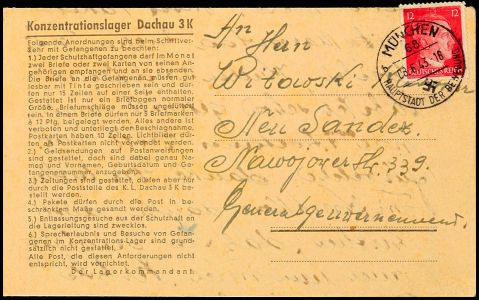 Konzentrationslager Dachau 3 K
Folgende Anordnungen sind beim Schriftver-
kehr mit Gefangenen zu beachten:
1.) Jeder Schutzhaftgefangene darf im Monat
zwei Briefe oder zwei Karten von seinen An-
gehörigen empfangen und an sie absenden.
Die Briefe an die Gefangenen müssen gut
lesbar mit Tinte geschrieben sein und dür-
fen nur 15 Zeilen auf einer Seite enthalten.
Gestattet ist nur ein Briefbogen normaler
Größe. Briefumschläge müssen ungefüttert
sein. In einem Briefe dürfen nur 5 Briefmarken
à 12 Pfg. beigelegt werden. Alles andere ist
verboten und unterliegt der Beschlagnahme.
Postkarten haben 10 Zeilen. Lichtbilder dür-
fen als Postkarten nicht verwandt werden.
2.) Geldsendungen auf Postanweisungen
sind gestattet, doch sind dabei genau Na-
me und Vornamen, Geburtsdatum und Ge-
fangenennummer anzugeben.
3.) Zeitungen sind gestattet, dürfen aber nur
durch die Poststelle des K. L. Dachau 3 K be-
stellt werden.
4.) Pakete dürfen durch die Post in be-
schränktem Maße gesandt werden.
5.) Entlassungsgesuche aus der Schutzhaft an
die Lagerleitung sind zwecklos.
6.) Sprecherlaubnis und Besuche von Gefan-
genen im Konzentrations-Lager sind grund-
sätzlich nicht gestattet.
Alle Post, die diesen Anforderungen nicht
entspricht, wird vernichtet.
Der Lagerkommandant.
An Hern
Witowski
Neu Sandez
339.
Generalgouvernement
12 12
MÜNCHEN
HAUPTSTADT DER BE